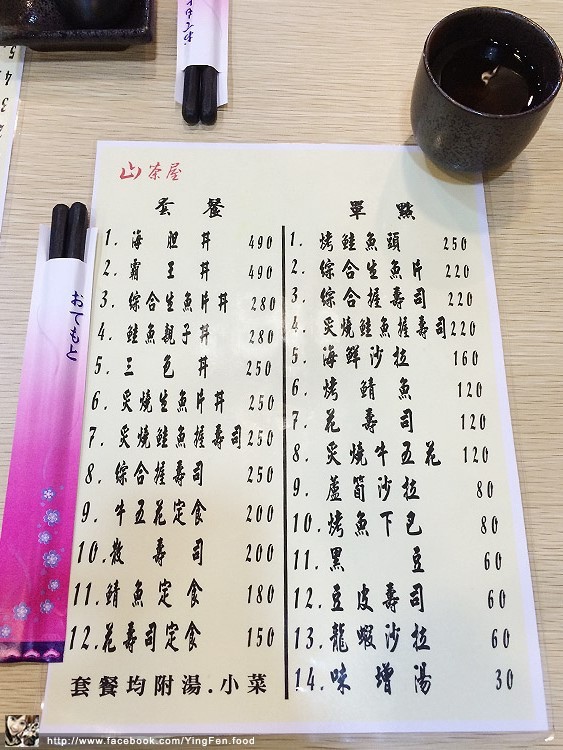 山茶屋
套餐
1. 海胆丼 490
2. 霸王丼 490
3. 綜合生魚片丼 280
4. 鮭魚親子丼 280
5. 三色丼 250
6. 炙燒生魚片丼 250
7. 炙燒鮭魚握壽司 250
8. 綜合握壽司 250
9. 牛五花定食 200
10. 散壽司 200
11. 鯖魚定食 180
12. 花壽司定食 150
套餐均附湯.小菜
單點
1. 烤鮭魚頭 250
2. 綜合生魚片 220
3. 綜合握壽司 220
4. 炙燒鮭魚握壽司 220
5. 海鮮沙拉 160
6. 烤鯖魚 120
7. 花壽司 120
8. 炙燒牛五花 120
9. 蘆筍沙拉 80
10. 烤魚下巴 80
11. 黑豆 60
12. 豆皮壽司 60
13. 龍蝦沙拉 60
14. 味增湯 30
おてもと
http://www.facebook.com/YingFen.food